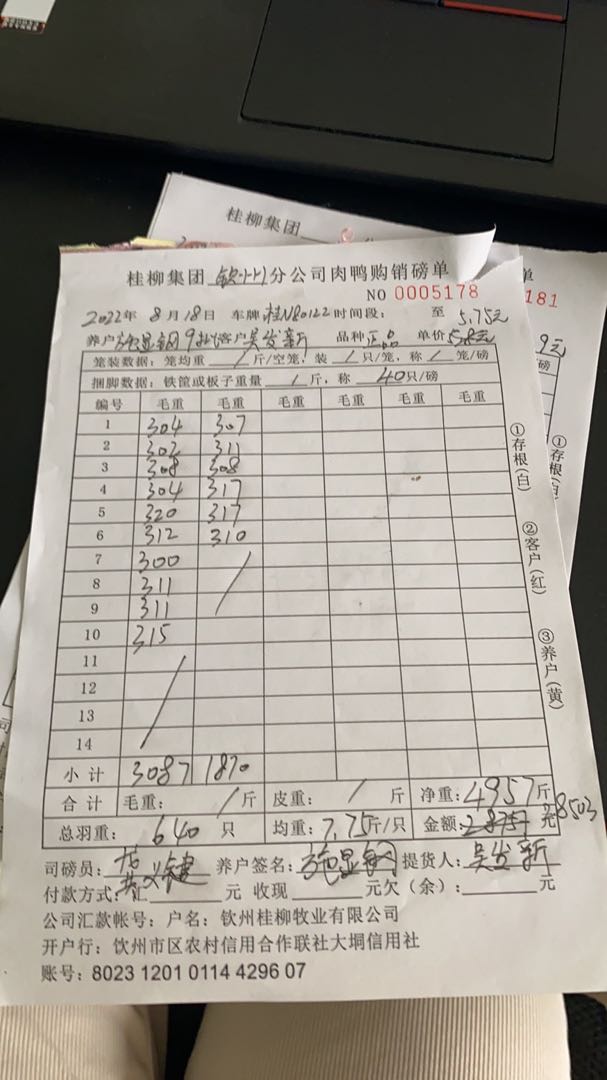 桂柳集团
桂柳集团 钦州 分公司肉鸭购销磅单
单
NO 0005178
181
2022年 8月18日 车牌 桂N80122 时间段： 至 5.75元
养户 施显钢 9批 客户 吴发新 品种 正品 单价 5.8元
9元
笼装数据：笼均重 / 斤/空笼，装 / 只/笼，称 / 笼/磅
捆脚数据：铁筐或板子重量 / 斤，称 40只/磅
编号 毛重 毛重 毛重 毛重 毛重 毛重
1 304 307
2 302 311
3 308 308
4 304 317
5 320 317
6 312 310
7 300 /
8 311
9 311
10 315
11 /
12
13
14
小计 3087 1870
合计 毛重： / 斤 皮重： / 斤 净重：4957斤
总羽重： 640 只 均重：7.75斤/只 金额： 元
28503
司磅员： 养户签名：施显钢 提货人：吴发新
付款方式：汇 元 收现 元欠（余）： 元
公司汇款帐号：户名：钦州桂柳牧业有限公司
开户行：钦州市区农村信用合作联社大垌信用社
账号：8023 1201 0114 4296 07
①存根(白) ②客户(红) ③养户(黄)